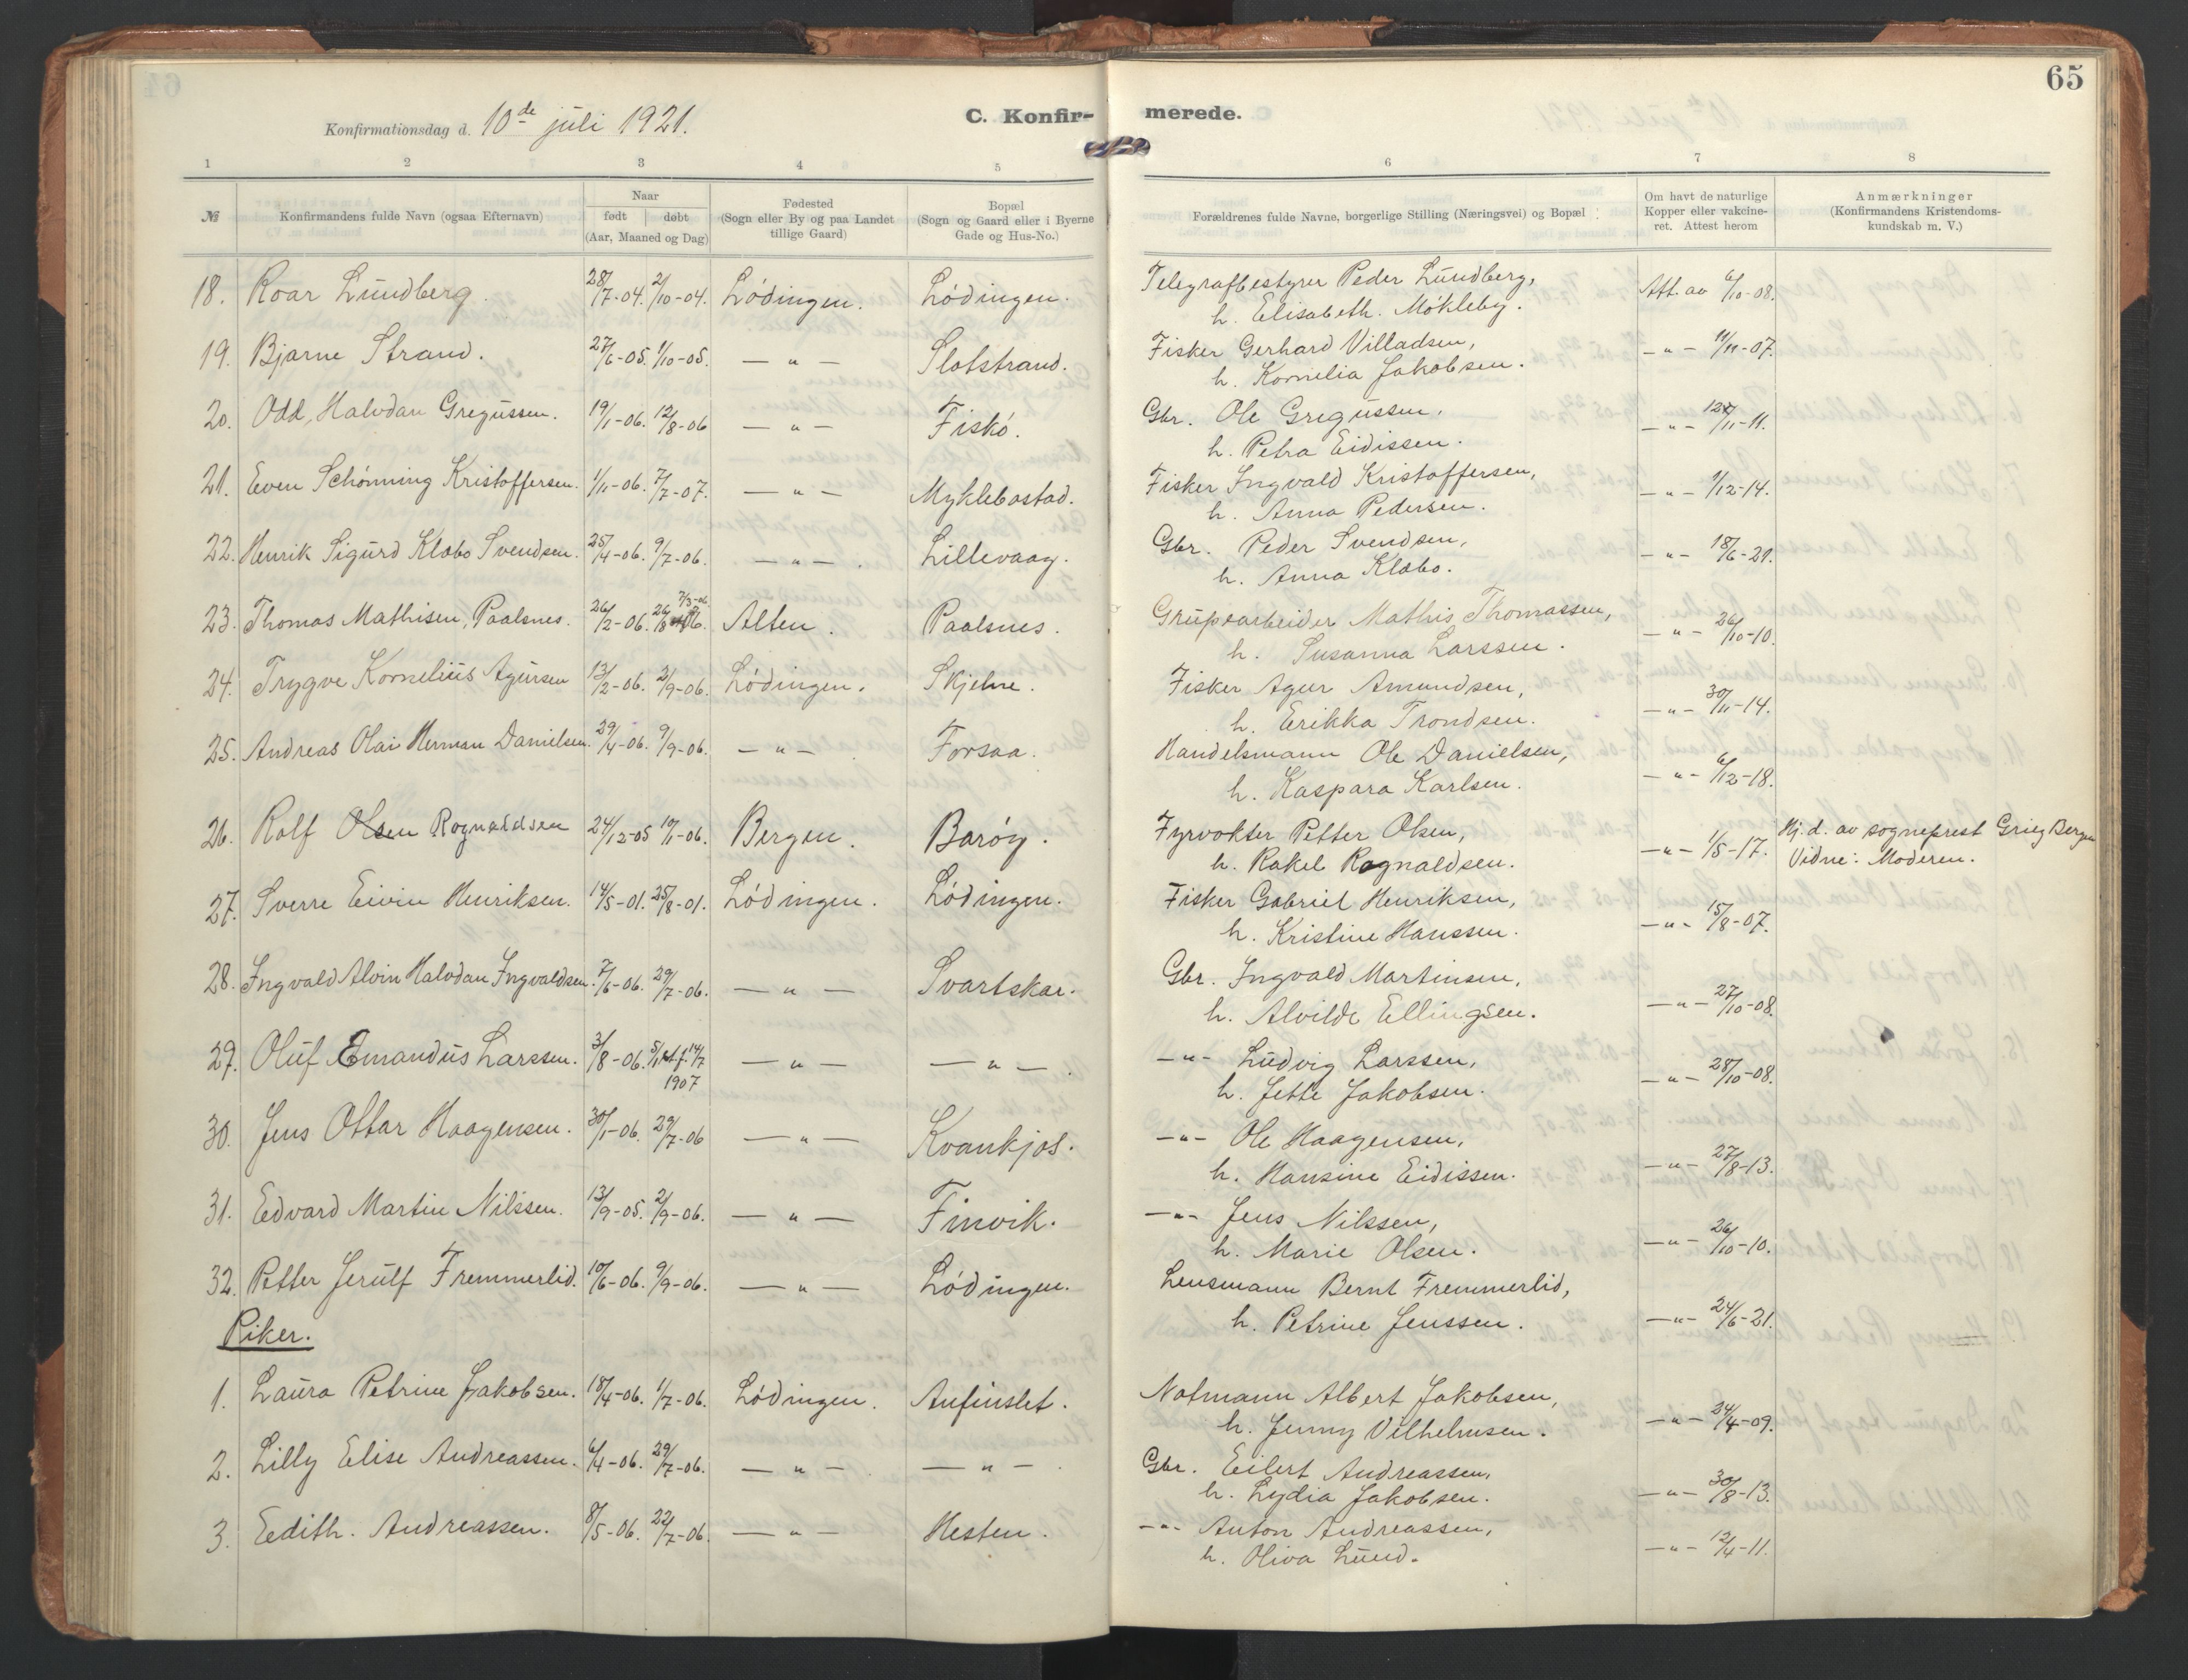 65
Konfirmationsdag d. 10de juli 1921.
C. Konfirmerede.
1 2 3 4 5 6 7 8
№
Konfirmandens fulde Navn (ogsaa Efternavn)
Naar
født døbt
(Aar, Maaned og Dag)
Fødested
(Sogn eller By og paa Landet
tillige Gaard)
Bopæl
(Sogn og Gaard eller i Byerne
Gade og Hus-No.)
Forældrenes fulde Navne, borgerlige Stilling (Næringsvei) og Bopæl
Om havt de naturlige
Kopper eller vakcine-
ret. Attest herom
Anmærkninger
(Konfirmandens Kristendoms-
kundskab m. V.)
18. Roar Lundberg. 28/7-04. 2/10-04. Lødingen. Lødingen. Telegrafbestyrer Peder Lundberg, Att. av 6/10-08.
h. Elisabeth. Møkleby.
19. Bjarne Strand. 27/6-05. 1/10-05. — " — Slotstrand. Fisker Gerhard Villadsen, — " — 11/11-07.
h. Kornelia Jakobsen.
20. Odd, Halvdan Gregussen. 19/1-06. 12/8-06 — " — Fiskø. Gbr. Ole Gregussen, — " — /11-11.
h. Petra Eidissen.
21. Even Schønning Kristoffersen. 1/11-06. 7/7-07. — " — Myklebostad. Fisker Ingvald Kristoffersen, — " — 1/12-14.
h. Anna Pedersen.
22. Henrik Sigurd Klæbo Svendsen. 25/4-06. 9/7-06. — " — Lillevaag. Gbr. Peder Svendsen, — " — 18/6-21.
h. Anna Klæbo.
23. Thomas Mathisen, Paalsnes. 26/2-06. 7/3-06. 26/8 06. Alten. Paalsnes. Grubearbeider Mathis Thomassen, — " — 26/10-10.
h. Susanna Larssen.
24. Trygve Kornelius Agursen 13/2-06. 2/9-06. Lødingen. Skjelne. Fisker Agur Amundsen, — " — 30/11-14.
h. Erikka Trondsen.
25. Andreas Olai Herman Danielsen. 29/4-06. 9/9-06. — " — Forsaa. Handelsmann Ole Danielsen, — " — 6/12-18.
h. Kaspara Karlsen.
26. Rolf Olsen Rognaldsen 24/12-05 10/1-06. Bergen. Barøy. Fyrvokter Petter Olsen, — " — 1/5-17. Hj. d. av sogneprest Grieg Bergen
h. Rakel Rognaldsen. Vidne: Moderen.
27. Sverre Eivin Henriksen. 14/5-01. 25/8-01. Lødingen. Lødingen. Fisker Gabriel Henriksen, — " — 15/8-07.
h. Kristine Hanssen.
28. Ingvald Alvin Halvdan Ingvaldsen. 7/6-06. 29/7-06. — " — Svartskar. Gbr. Ingvald Martinsen, — " — 27/10-08.
h. Alvilde Ellingsen.
29. Oluf Emandus Larssen. 3/8-06. 14/7 1907 — " — — " — — " — Ludvig Larssen, — " — 28/10-08.
h. Jette Jakobsen.
30. Jens Ottar Haagensen. 30/1-06. 29/7-06 — " — Kvankjos. — " — Ole Haagensen, — " — 27/8-13.
h. Hansine Eidissen.
31. Edvard Martin Nilssen. 13/9-05. 2/9-06. — " — Finvik. — " — Jens Nilssen, — " — 26/10-10.
h. Marie Olsen.
32. Petter Jerulf Fremmerlid. 10/6-06. 9/9-06. — " — Lødingen. Lensmann Bernt Fremmerlid, — " — 24/6-21.
h. Petrine Jenssen.
Piker.
1. Laura Petrine Jakobsen. 18/4-06. 1/7-06. Lødingen. Anfinslet. Notmann Albert Jakobsen, — " — 24/4-09.
h. Jenny Vilhelmsen.
2. Lilly Elise Andreassen. 6/4-06. 29/7-06. — " — — " — Gbr. Eilert Andreassen, — " — 30/8-13.
h. Lydia Jakobsen.
3. Edith. Andreassen. 8/5-06. 22/7-06. — " — Hesten. — " — Anton Andreassen, — " — 12/4-11.
h. Oliva Lund.